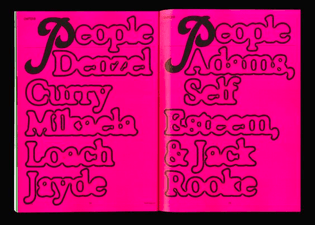 People
Denzel
Curry
Mikaela
Loach
Jayde
People
Adams,
Self
Esteem,
& Jack
Rooke